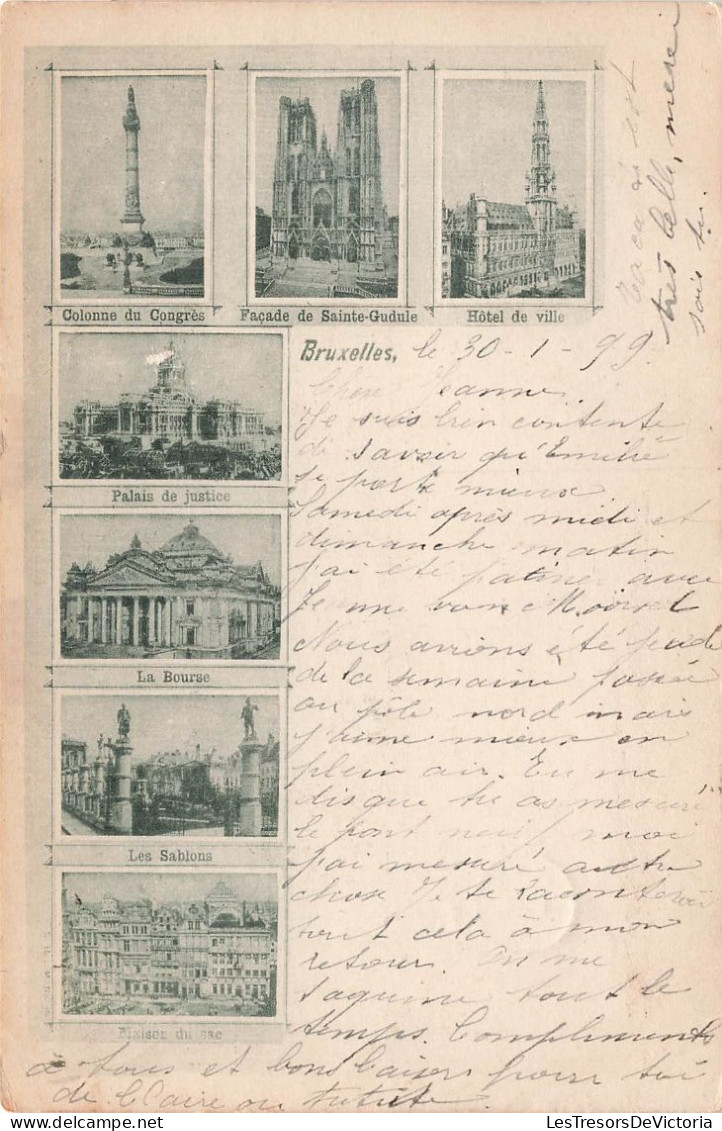 Colonne du Congrès
Façade de Sainte-Gudule
Hôtel de ville
Palais de justice
La Bourse
Les Sablons
Maison du sac
Bruxelles, le 30-1-99.
Chère Jeanne.
Je suis bien contente
de savoir qu'Emilie
se porte mieux.
Samedi après midi et
dimanche matin
j'ai été patiner avec
Jeanne van
Nous avions été
de la semaine passée
au pôle nord mais
j'aime mieux en
plein air. Tu me
dis que tu as mesuré
le pont neuf, moi
j'ai mesuré autre
chose. Je te raconterai
tout cela à mon
retour. On me
taquine tout le
temps. Compliments
à tous et bons baisers pour toi
de Claire ou
est
très belle, merci
LesTresorsDeVictoria - Delcampe.net
LesTresorsDeVictoria